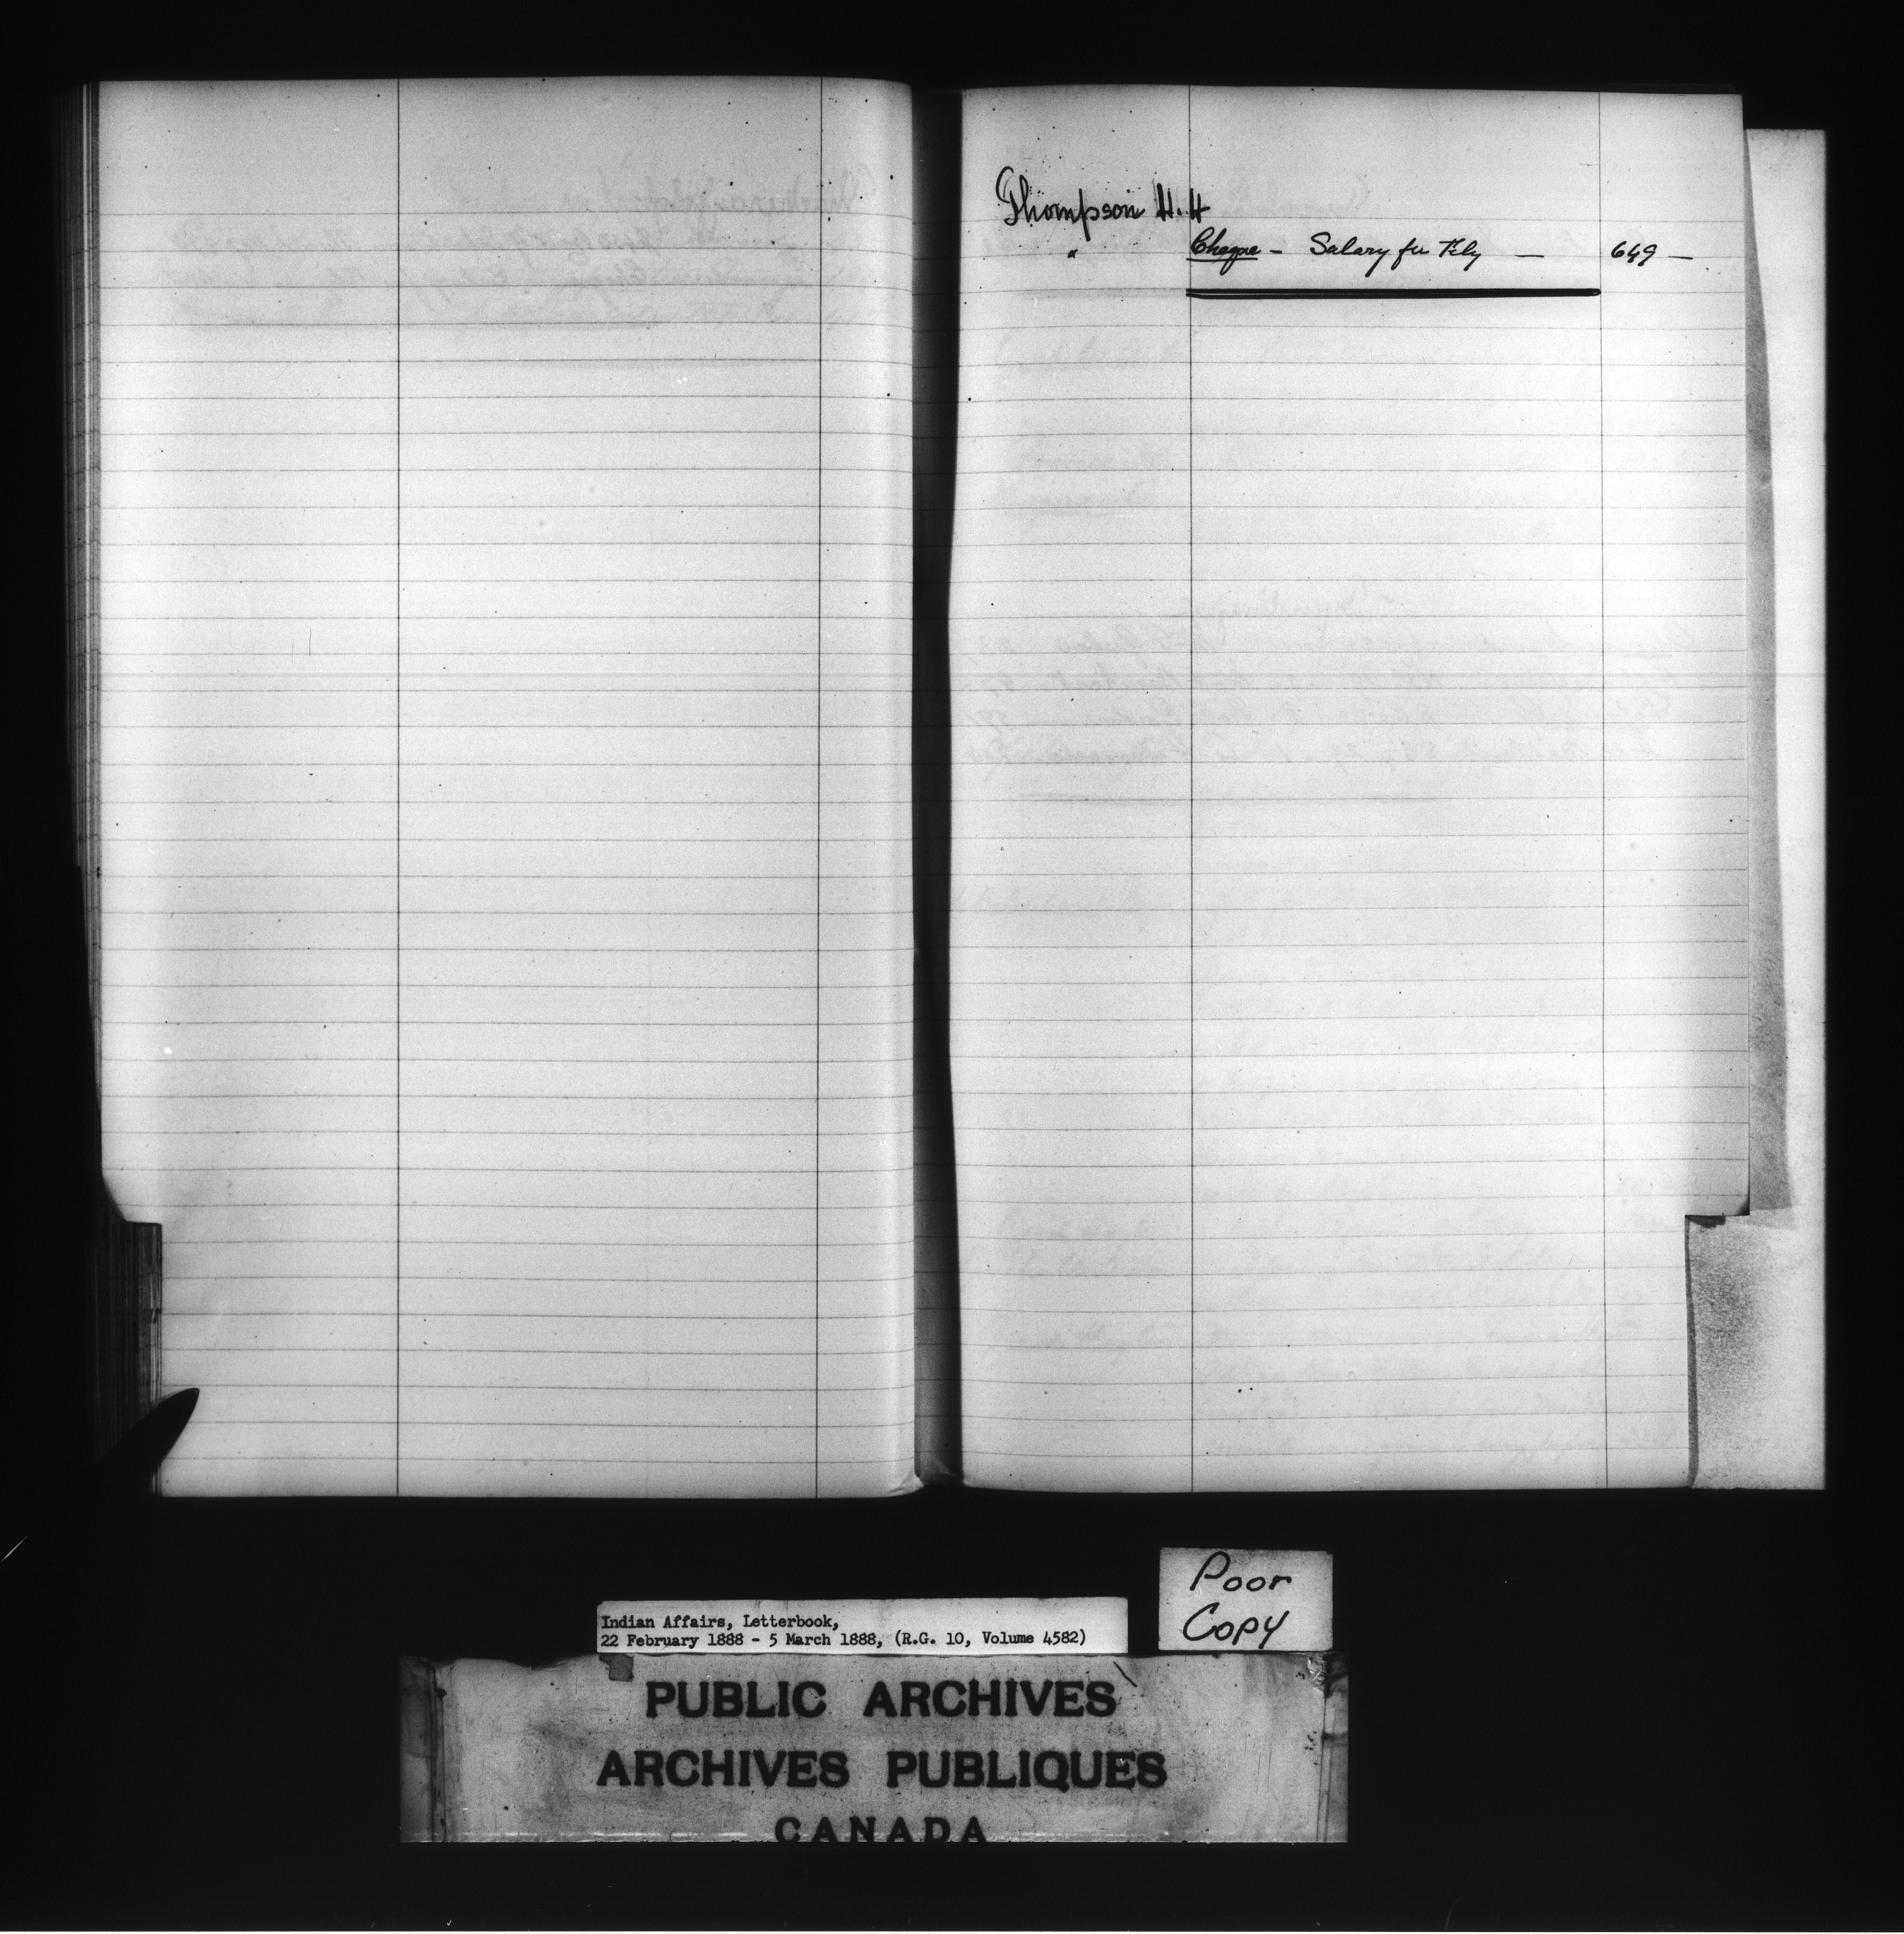 Thompson H.H
" Cheque - Salary for Feby — 649 —
Poor
Copy
Indian Affairs, Letterbook,
22 February 1888 - 5 March 1888, (R.G. 10, Volume 4582)
PUBLIC ARCHIVES
ARCHIVES PUBLIQUES
CANADA